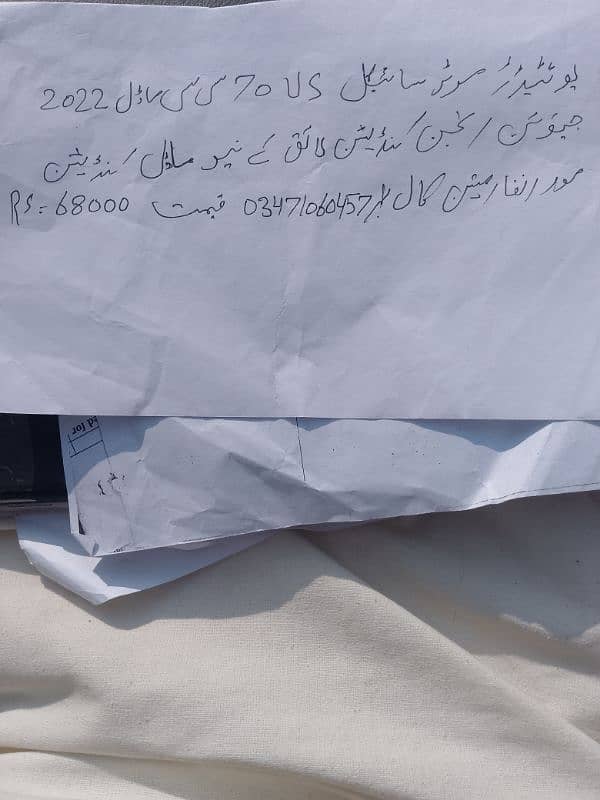 یونٹیڈڑ موٹر سائیکل US 70 سی سی ماڈل 2022
جینون / انجن کنڈیشن لائق کے نیو ماڈل کنڈیشن
مور انفارمیشن کال 03471060457 قیمت Rs = 68000
ed for